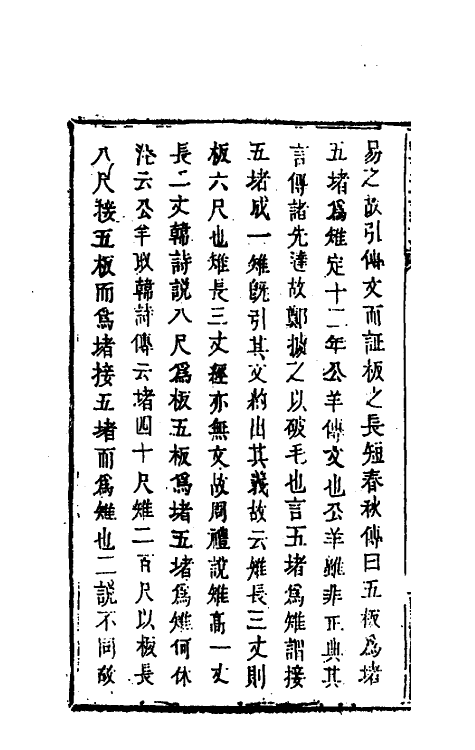 易之故引傳文而証板之長短春秋傳曰五板爲堵
五堵爲雉定十二年公羊傳文也公羊雖非正典其
言傳諸先達故鄭據之以破毛也言五堵爲雉謂接
五堵成一雉旣引其文約出其義故云雉長三丈則
板六尺也雉長三丈經亦無文故周禮說雉高一丈
長二丈韓詩說八尺爲板五板爲堵五堵爲雉何休
注云公羊取韓詩傳云堵四十尺雉二百尺以板長
八尺接五板而爲堵接五堵而爲雉也二說不同故